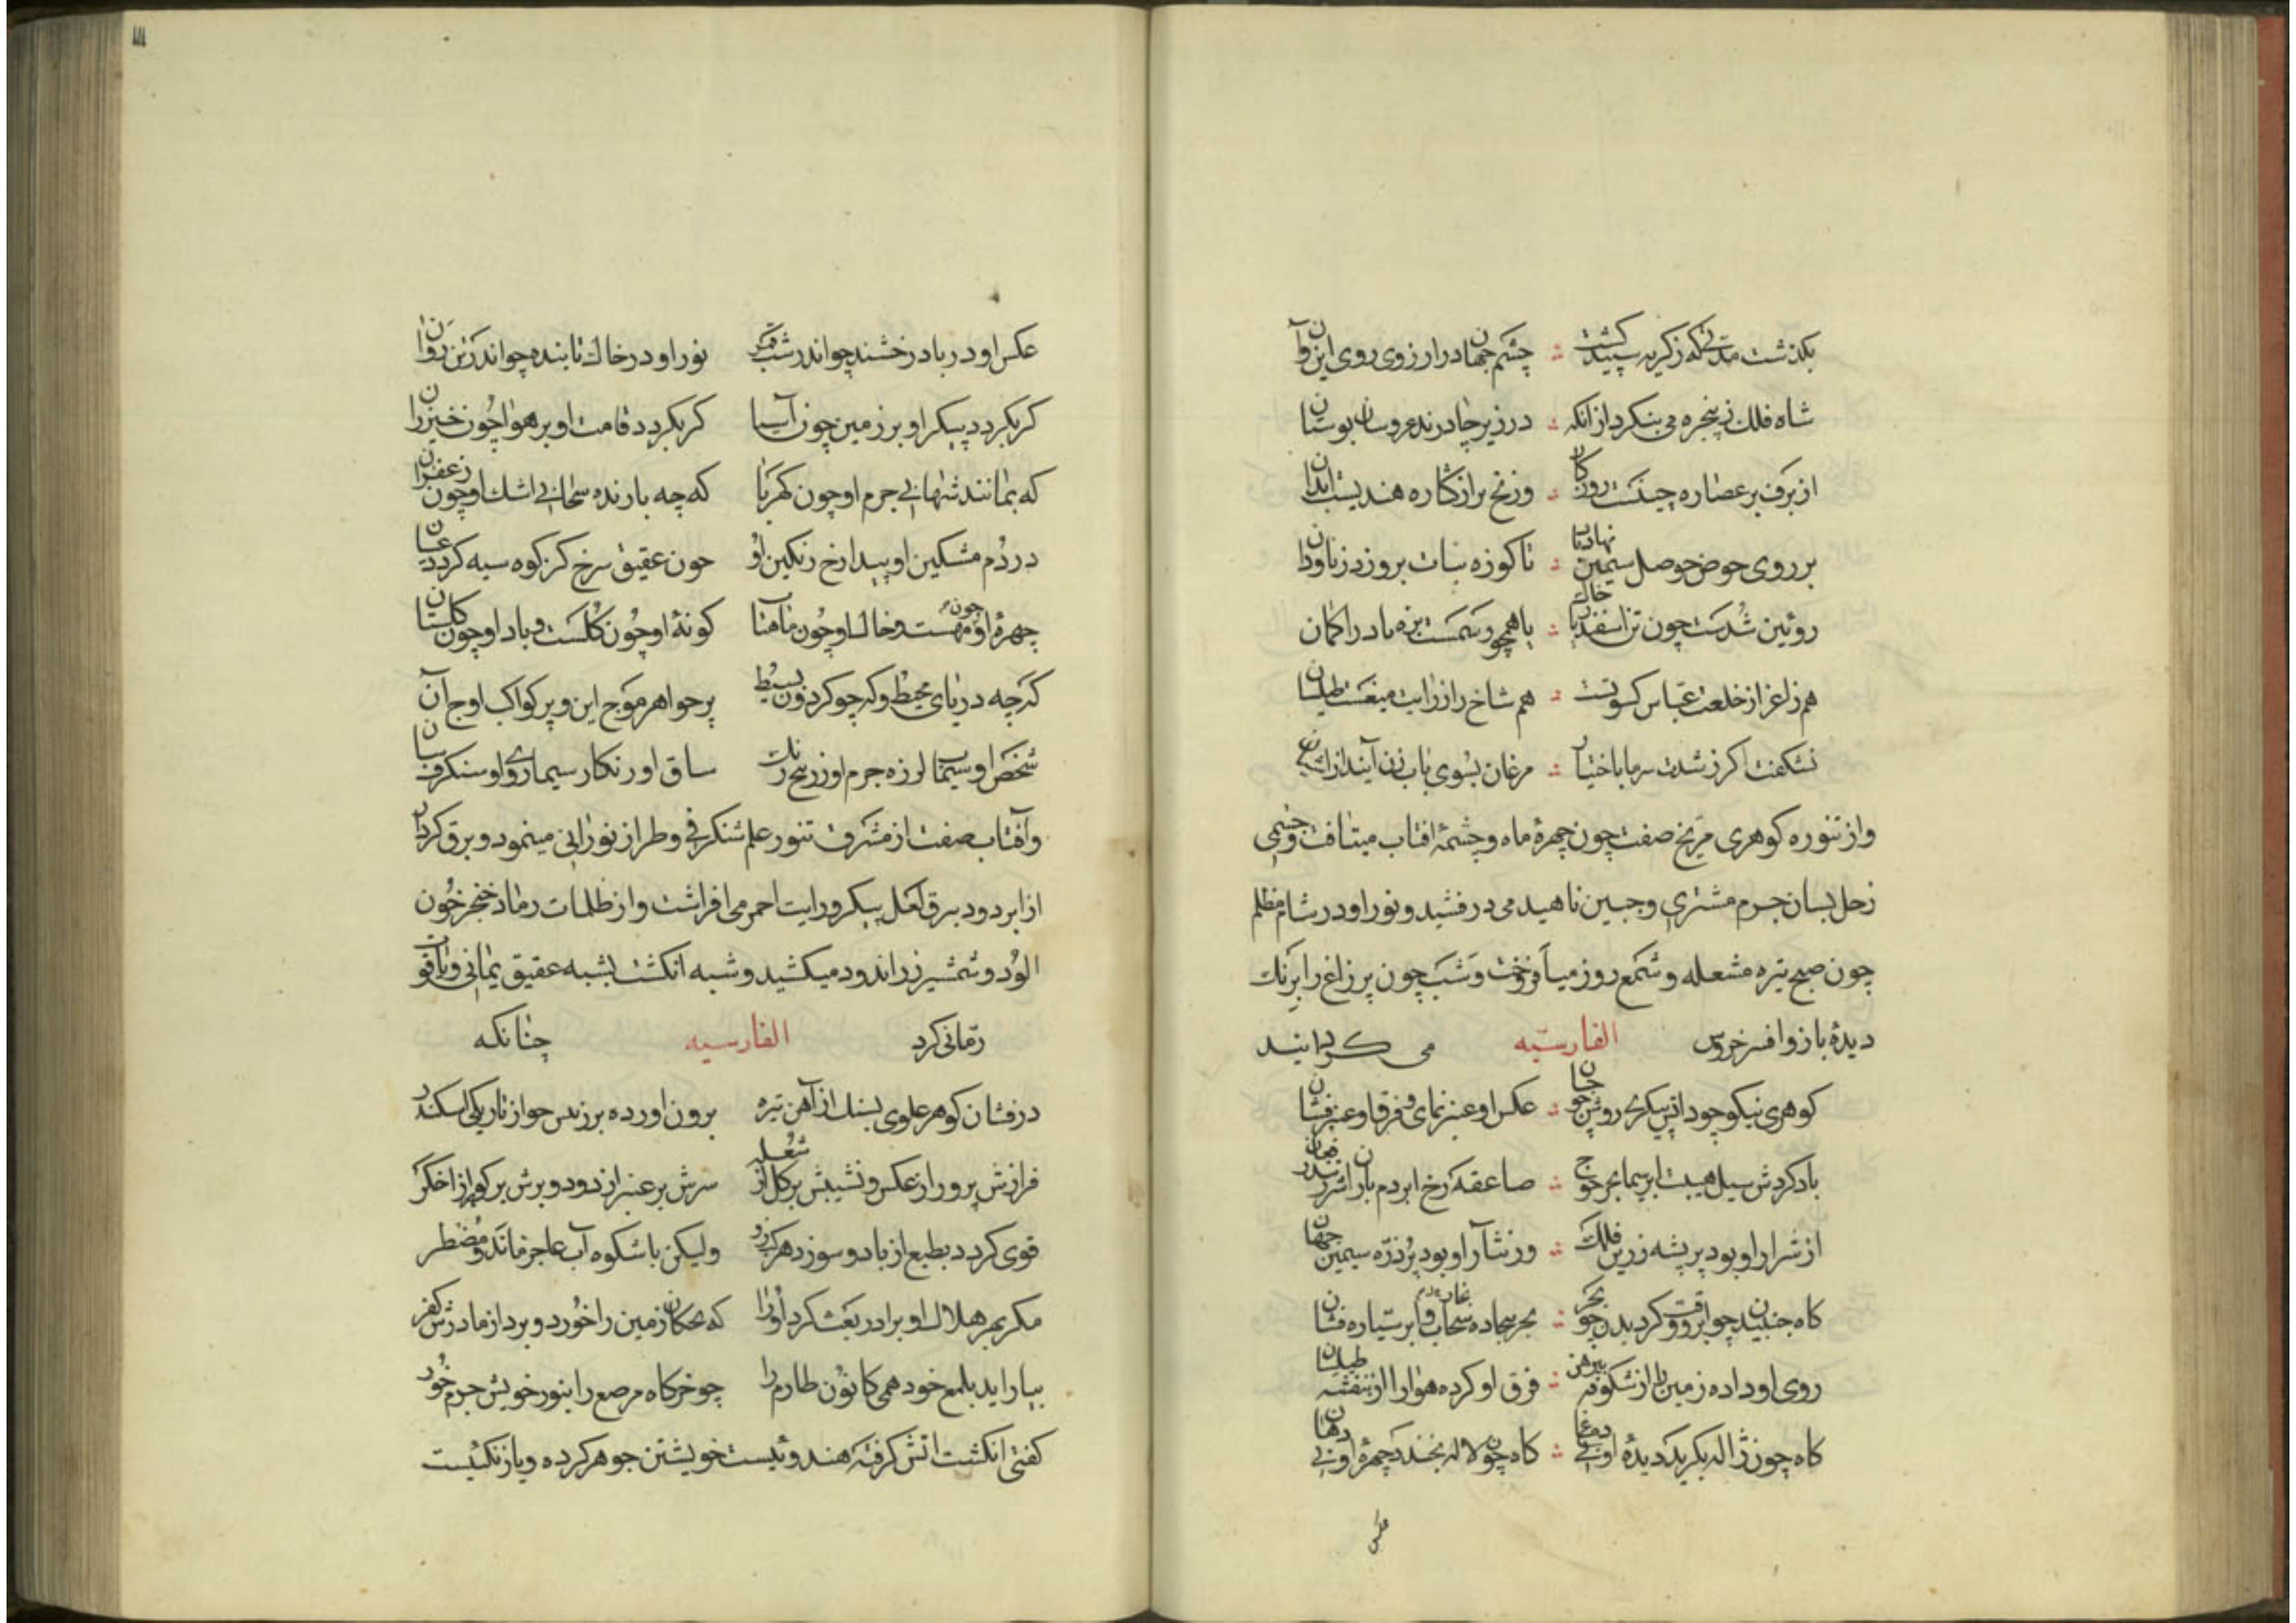 بکذشت مدتی که زکریه سپید کشت ؞ چشم جهان در ارزوی روی این وآن
شاه فلک ز پنجره می ننکرد از انکه ؞ در زیر چادرند عروسان بوستان
از برف بر عصاره چینست روزکار ؞ وز یخ بر از کناره هندیست ابدان
بر روی حوض حوصل سیمین نهاد تا ؞ تا کوزه نبات بروزد ز ناودان
روئین شدست چون تن اسفندیار خاک ؞ با همچو رستمست بزه باد را کمان
هم زاغ را ز خلعت عباس کسوتست ؞ هم شاخ را ز رایت میغست طیلسان
نشکفت اکر ز شدت سرما باختیار ؞ مرغان بسوی باب زن آیند از اشیان
واز تنوره کوهری مریخ صفت چون چهرهٔ ماه و چشمهٔ افتاب میتافت و جسمی
زحل بسان جرم مشتری و جبین ناهید می درفشید و نور او در شام مظلم
چون صبح نیره مشعله و شمع روز میافروخت و شب چون پر زاغ را برنک
دیدهٔ باز و افسر خروس الفارسیّه می کردانید
کوهری نیکو چو دانش پیکری روشن چو جان ؞ عکس او عنبر نمای و فرق او عنبر فشان
باد کردش سیل هیبت ابر سیما بحر موج ؞ صاعقه رخ ابر دم باران اثر تندر فغان
از شرار او بود پر پشه زرین فلک ؞ وز نثار او بود پر ذره سیمین جهان
کاه جنبیدن چو ابر و وقت کردیدن چو بحر ؞ بحر بیجاده سحاب و ابر سیاره فشان
روی او داده زمین را از شکوفه پیرهن ؞ فرق او کرده هوا را از بنفشه طیلسان
کاه چون ژاله بکرید دیدهٔ او بی دماغ ؞ کاه چون لاله بخندد چهرهٔ او بی دهان
عکس
عکس او در باد رخشنده چو اندر شب قمر نور او در خاک تابنده چو اندر تن روان
کر بکردد پیکر او بر زمین چون آسیا کر بکردد قامت او بر هوا چون خیزران
که بمانند شهابی جرم او چون کهربا که چه بارنده سحابی اشک او چون زعفران
در دم مشکین او پیدا رخ رنکین او چون عقیق سرخ کز کوه سیه کردد عیان
چهرهٔ او چون مهست و خال او چون ماهتاب کونهٔ او چون کلست و باد او چون کلستان
که چه دریای محیط و که چو کردون بسیط پر جواهر موج این و پر کواکب اوج آن
شخص او سیماب لرزه جرم او زرنیخ رنک ساق او زنکار سیما روی او شنکرف سان
وآفتاب صفت از مشرق تنور علم شنکرفی و طراز نورانی مینمود و برق کردار
از ابر دود بیرق لعل پیکر و رایت احمر می افراشت و از ظلمات رماد خنجر خون
الود و شمشیر زراندود میکشید و شبه انکشت بشبه عقیق یمانی و یاقوت
رمّانی کرد الفارسیه چنانکه
درفشان کوهر علوی بسنک از آهن تیره برون اورده برزیس چو از تاریکی اسکندر
فرازش پر ور از عکس و نشیبش بر کل از شعله سرش بر عنبر از دود و برش بر کوهر از اخکر
قوی کردد بطبع از باد و سوزد هر کز ولیکن با شکوه آب عاجز ماند و مضطر
مکر بهر هلال او برادر بعث کرد او را که یحکان زمین را خورد و برد از مادرش کفر
بیاراید بلمع خود همی کانون طارم را چو خرکاه مرصع را بنور خویش جرم خور
کفتی انکشت اتش کرفته هندوئیست خویشتن جوهر کرده و یا زنکئیست